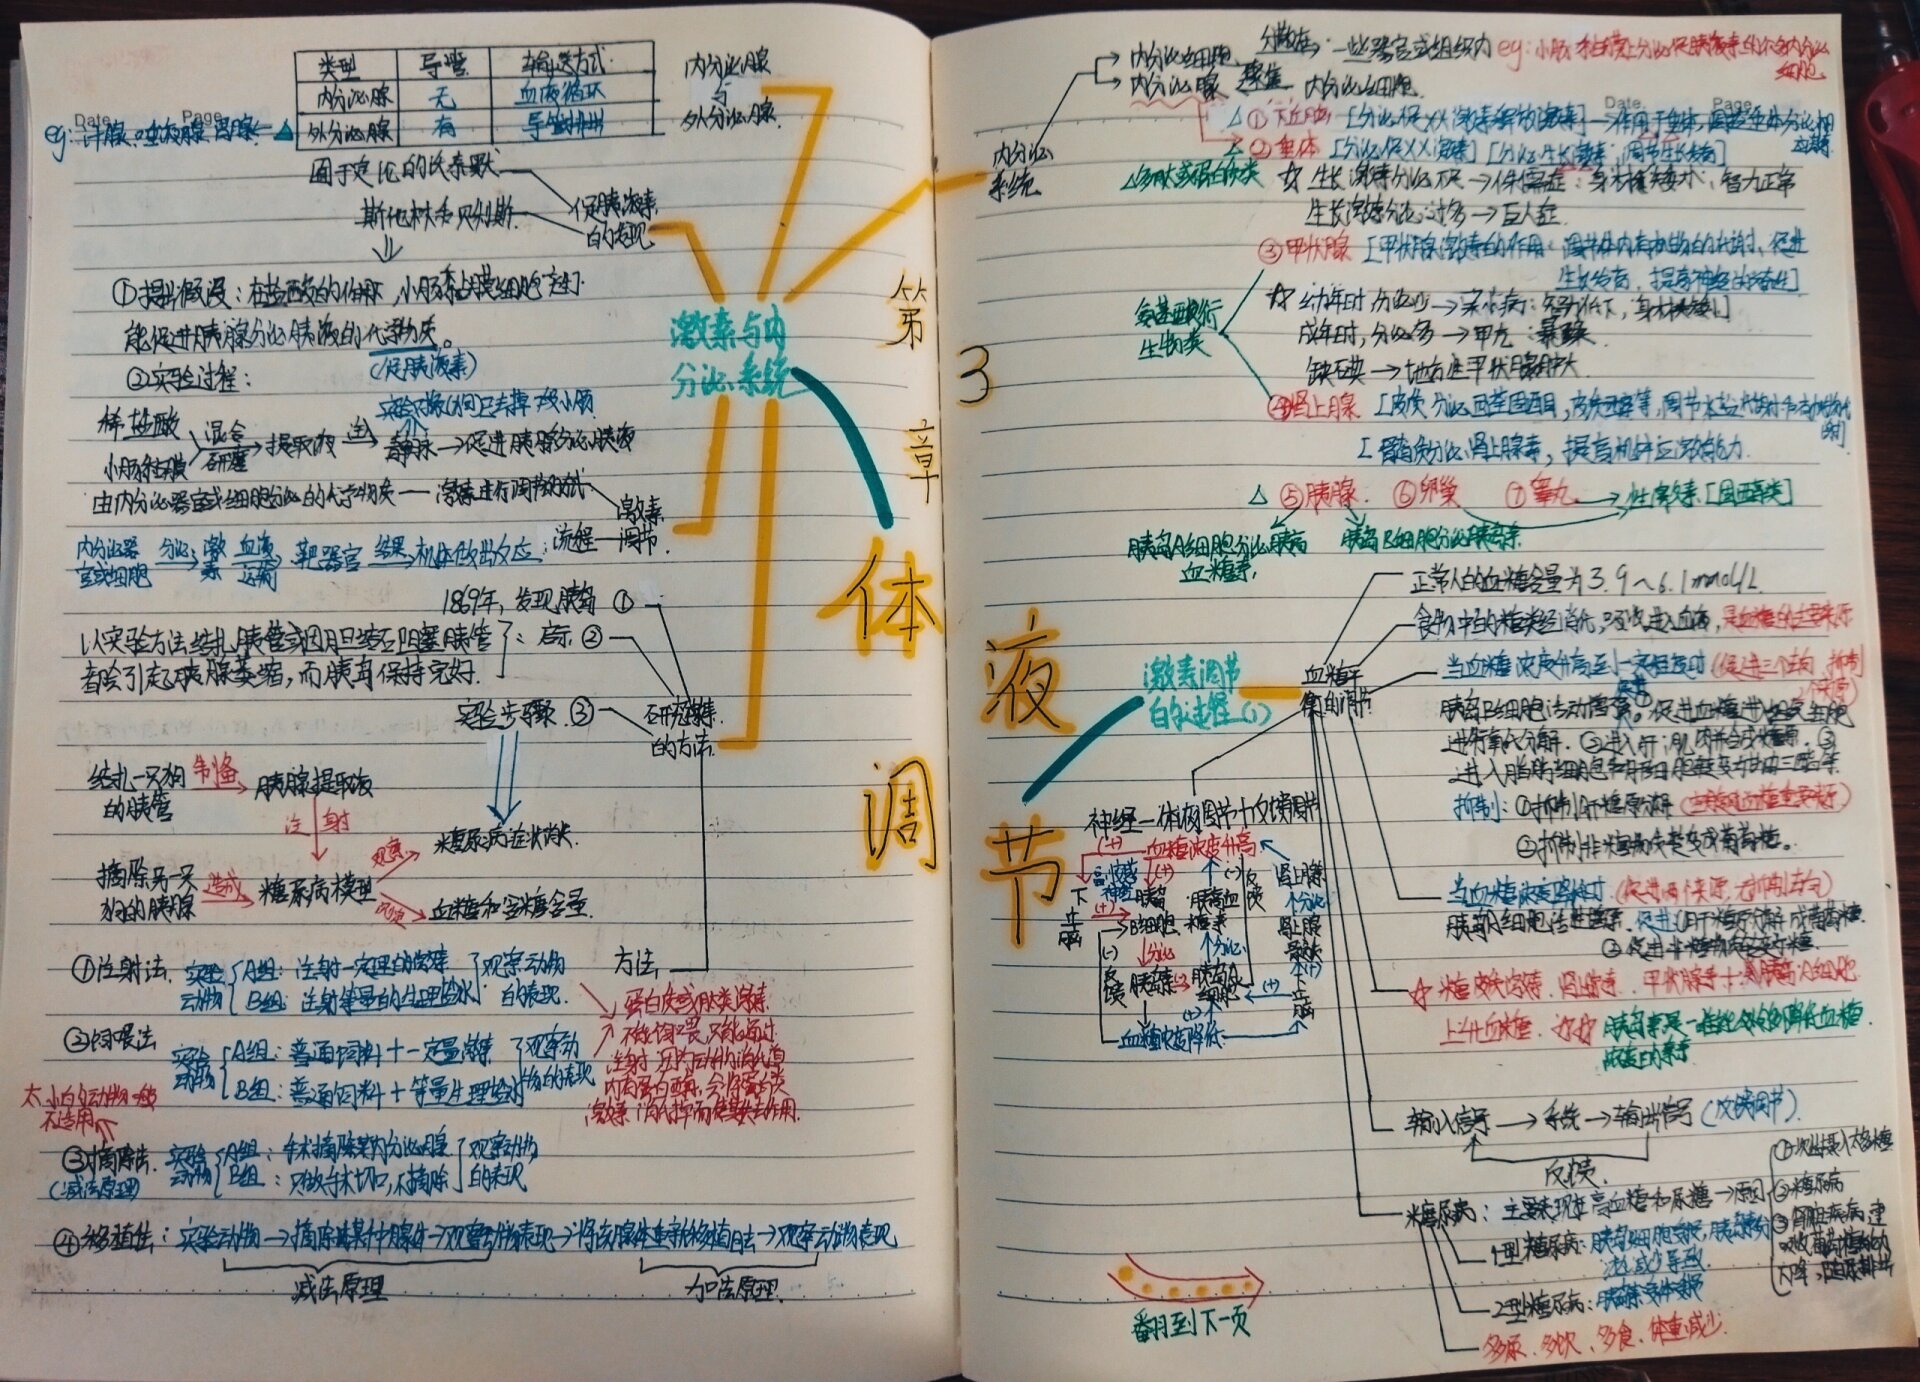 类型 导管 输送方式
内分泌腺 无 血液循环
外分泌腺 有 导管排出
内分泌腺
与
外分泌腺
Date Page
eg：汗腺、唾液腺、胃腺
囿于定论的沃泰默
斯他林和贝利斯
促胰液素
的发现
①提出假设：在盐酸的作用下，小肠黏膜细胞产生了
能促进胰腺分泌胰液的化学物质。
(促胰液素)
②实验过程：
稀盐酸
小肠黏膜
混合
研磨
提取液
静脉→促进胰腺分泌胰液
由内分泌器官或细胞分泌的化学物质—激素进行调节的方式
激素
调节
流程
内分泌器
官或细胞
分泌 激素 血液
运输
靶器官 结果 机体做出反应
1869年，发现胰岛 ①
以实验方法结扎胰管或因胆结石阻塞胰管
都会引起胰腺萎缩，而胰岛保持完好
启示 ②
实验步骤 ③
研究激素
的方法
结扎一只狗
的胰管
制备
胰腺提取液
注射
摘除另一只
狗的胰腺
造成
糖尿病模型
观察
糖尿病症状消失
血糖和尿糖含量
方法
①注射法
实验
动物
A组：注射一定量的激素
B组：注射等量的生理盐水
观察动物
的表现
②饲喂法
实验
动物
A组：普通饲料＋一定量激素
B组：普通饲料＋等量生理盐水
观察动
物的表现
蛋白质或肽类激素
不能饲喂，只能通过
注射，因为动物消化道
内有蛋白酶，会将蛋白类
激素消化掉而使其失去作用
太小的动物一般
不适用
③摘除法
(减法原理)
实验
动物
A组：手术摘除某内分泌腺
B组：只做手术切口，不摘除
观察动物
的表现
④移植法：实验动物→摘除其某种腺体→观察动物表现→将该腺体重新移植回去→观察动物表现
减法原理 加法原理
激素与内
分泌系统
第
3
章
体
液
调
节
内分泌
系统
内分泌细胞 分散在 一些器官或组织内 eg：小肠黏膜上分泌促胰液素的许多内分泌
细胞
内分泌腺 聚集 内分泌细胞
Date Page
①下丘脑 [分泌促XX激素释放激素]→作用于垂体，调控垂体分泌相
应激素
②垂体 [分泌促XX激素] [分泌生长激素，调节生长发育]
△多肽或蛋白质类
☆ 生长激素分泌不足→侏儒症：身材矮小，智力正常
生长激素分泌过多→巨人症
③甲状腺 [甲状腺激素的作用：调节体内有机物的代谢、促进
生长发育，提高神经的兴奋性]
氨基酸衍
生物类
☆ 幼年时分泌少→呆小病：智力低下，身材矮小
成年时，分泌多→甲亢
缺碘→地方性甲状腺肿大
④肾上腺 [皮质分泌醛固酮，皮质醇等，调节水盐代谢和有机物代
谢]
[髓质分泌肾上腺素，提高机体应激能力
△ ⑤胰腺 ⑥卵巢 ⑦睾丸→性激素[固醇类]
胰岛A细胞分泌胰高
血糖素
胰岛B细胞分泌胰岛素
激素调节
的过程(1)
血糖平
衡的调节
正常人的血糖含量为3.9～6.1mmol/L
食物中的糖类经消化，吸收进入血液，是血糖的主要来源
当血糖浓度升高到一定程度时
胰岛B细胞活动增强。促进血糖进入组织细胞
进行氧化分解，②进入肝，肌肉并合成糖原，③
进入脂肪细胞和肝细胞转变为甘油三酯等
抑制：①抑制肝糖原分解
②抑制非糖物质转变成葡萄糖。
当血糖浓度降低时 (促进两个来源，无抑制去向)
胰岛A细胞活性增强，促进肝糖原分解成葡萄糖
②促进非糖物质转变成糖
☆ 糖皮质激素、肾上腺素、甲状腺素＋胰高血糖素
上升血糖
胰岛素是唯一能够降低血糖
浓度的激素
神经—体液调节＋反馈调节
血糖浓度升高
下丘脑
副交感
神经
胰岛
B细胞
分泌
胰岛素
血糖浓度降低
反馈
胰高血
糖素
分泌
胰岛A
细胞
肾上腺素
分泌
肾上腺
髓质
输入信号→系统→输出信号 (反馈调节)
反馈
糖尿病：主要表现在高血糖和尿糖→原因
①一次性摄入太多糖
②糖尿病
③肾脏疾病
1型糖尿病：胰岛B细胞受损，胰岛素分
泌减少导致
2型糖尿病：
多尿、多饮、多食、体重减少
翻到下一页